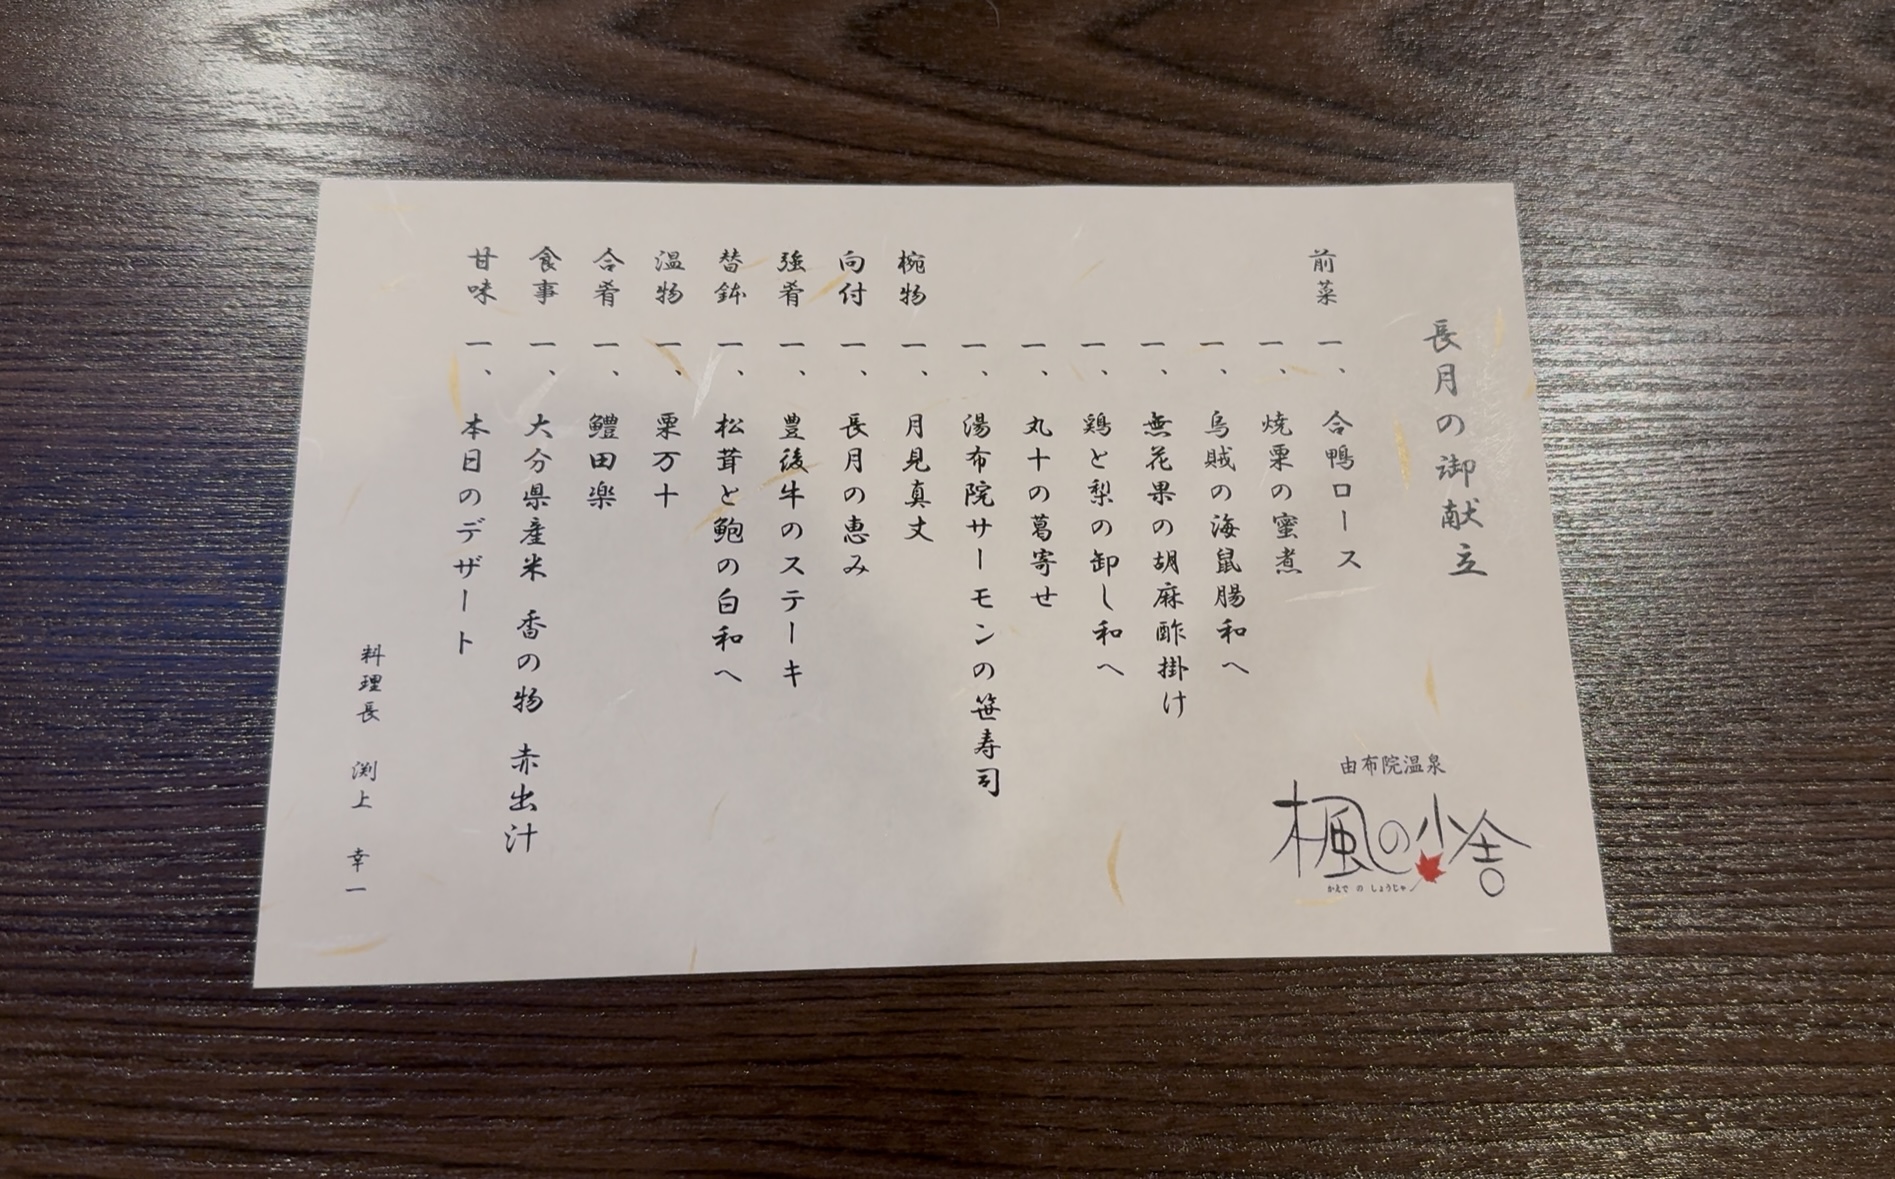 長月の御献立
前菜 一、合鴨ロース
一、焼栗の蜜煮
一、烏賊の海鼠腸和へ
一、無花果の胡麻酢掛け
一、鶏と梨の卸し和へ
一、丸十の葛寄せ
一、湯布院サーモンの笹寿司
椀物 一、月見真丈
向付 一、長月の恵み
強肴 一、豊後牛のステーキ
替鉢 一、松茸と鮑の白和へ
温物 一、栗万十
合肴 一、鱧田楽
食事 一、大分県産米 香の物 赤出汁
甘味 一、本日のデザート
料理長 渕上 幸一
由布院温泉
楓の小舎
かえで の しょうじゃ